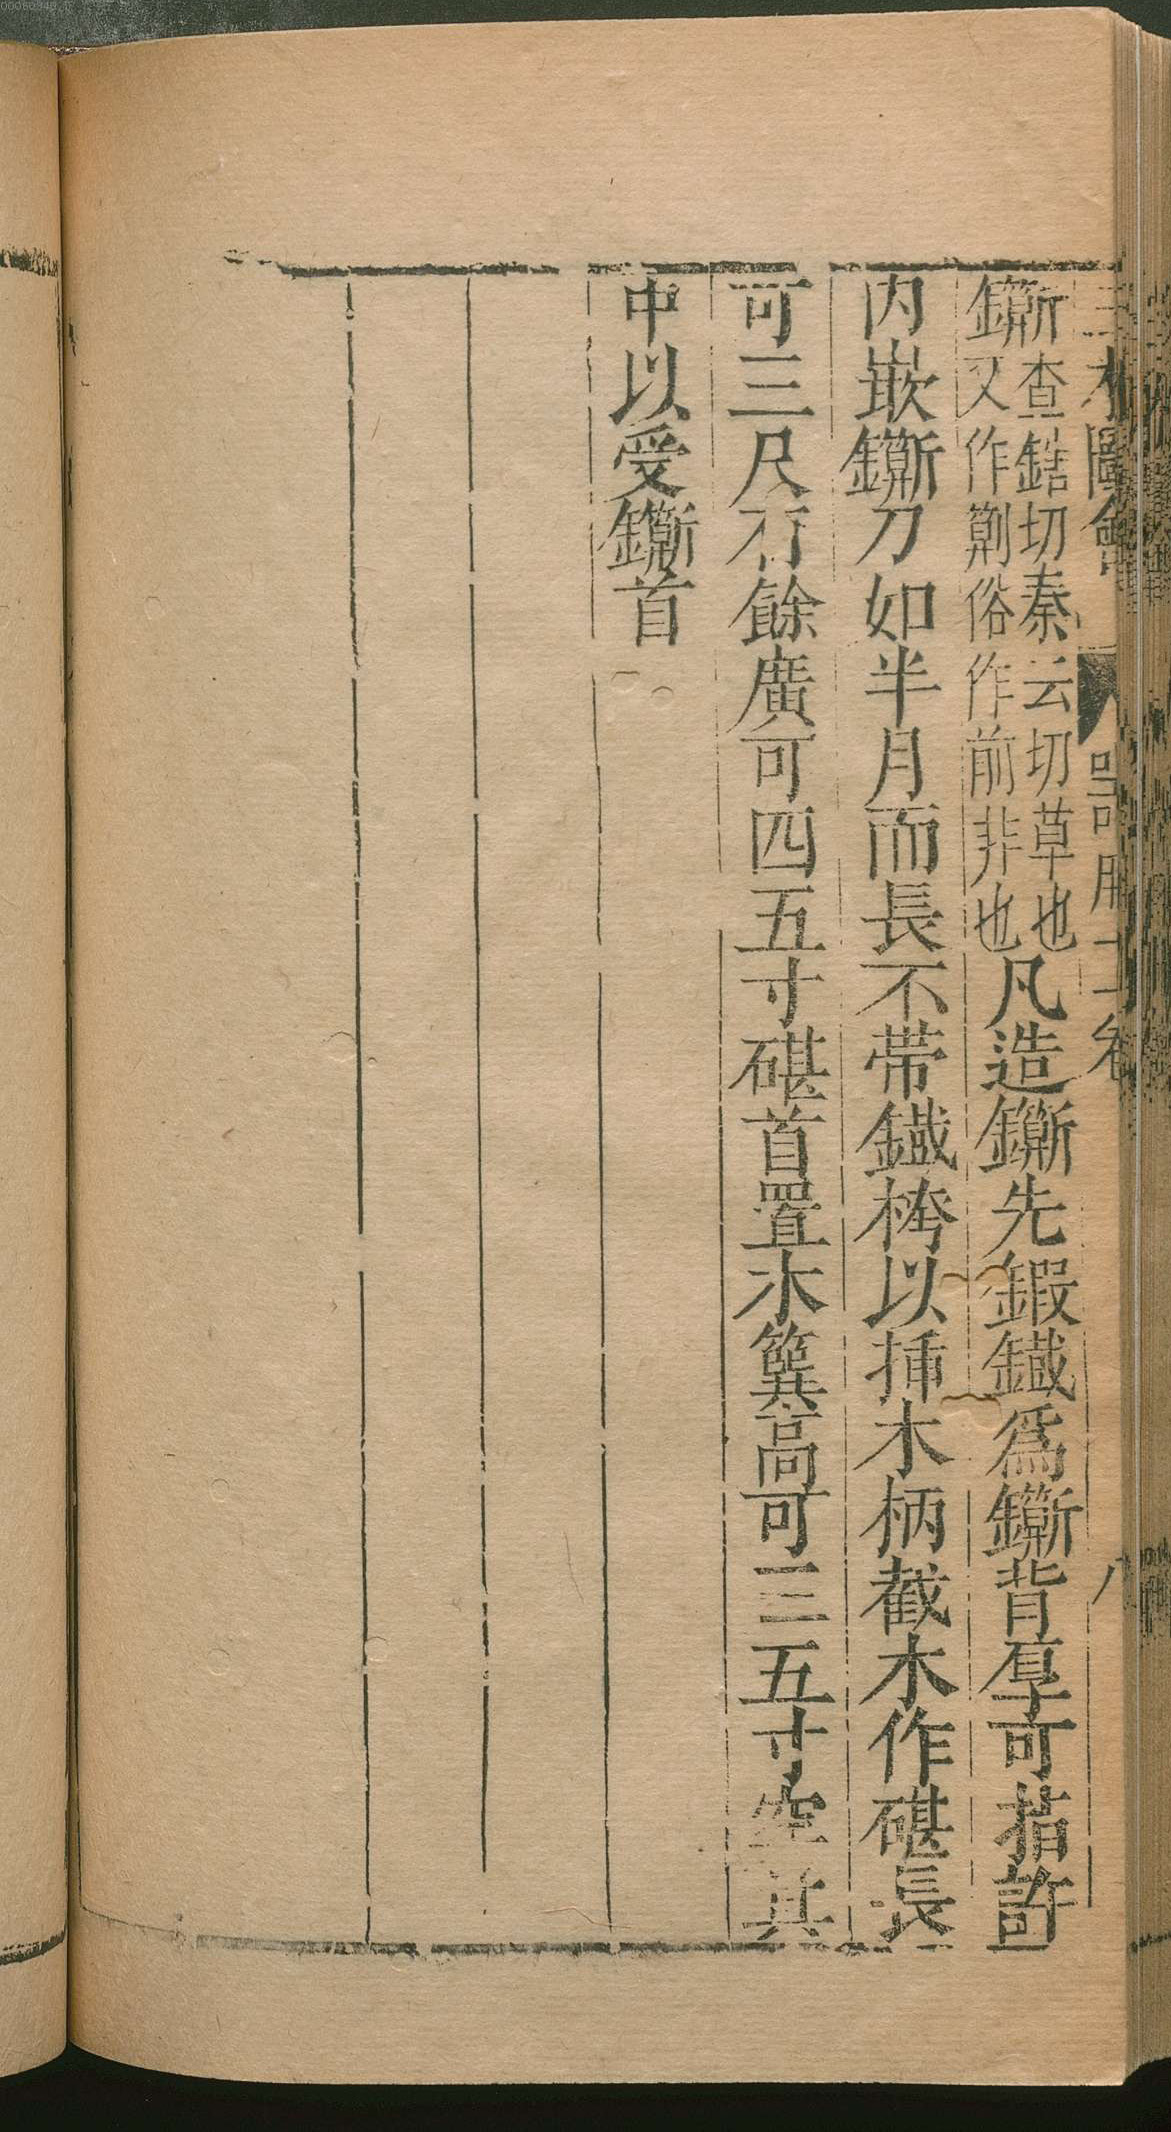 三才圖會 器用 卷 八
鑡 查鎋切秦云切草也
又作 俗作前非也
凡造鑡先鍛鐵爲鑡背厚可指許
内嵌鑡刀如半月而長不帶鐵桍以插木柄截木作碪長
可三尺有餘廣可四五寸碪首置木簨高可三五寸空其
中以受鑡首